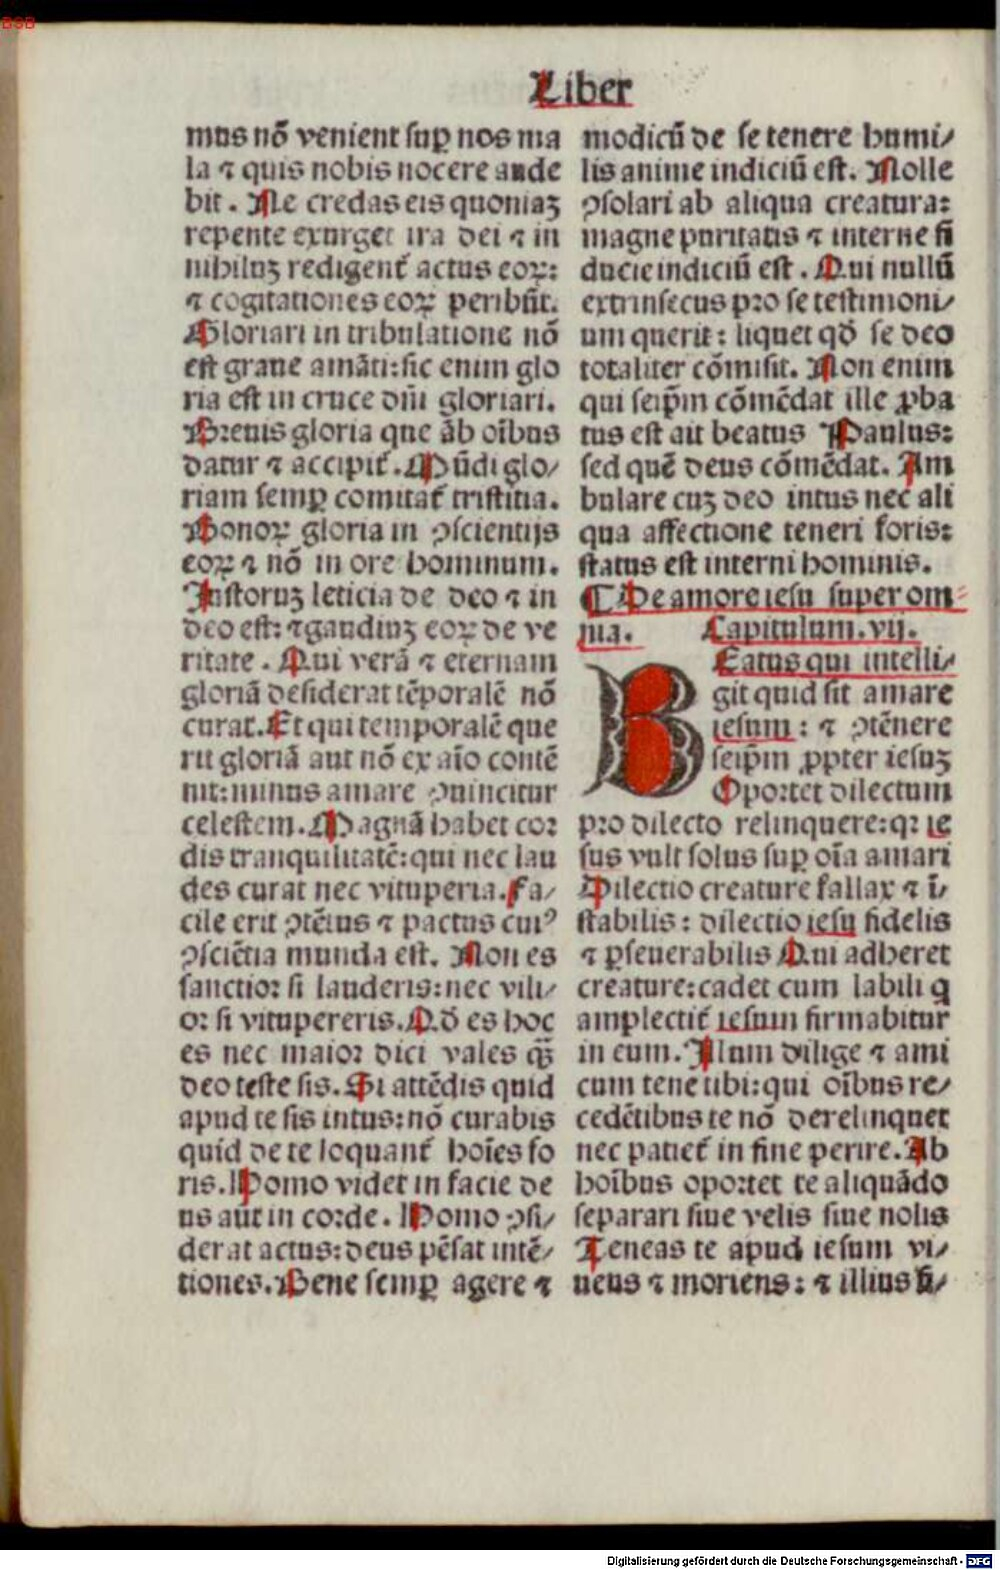 BSB
Liber
mus nō venient suꝑ nos ma
la ⁊ quis nobis nocere aude
bit. Ne credas eis quoniaꝫ
repente exurget ira dei ⁊ in
nihiluꝫ redigent᷑ actus eoꝝ:
⁊ cogitationes eoꝝ peribūt.
Gloriari in tribulatione nō
est graue amāti: sic enim glo
ria est in cruce dn̄i gloriari.
Breuis gloria que ab oībus
datur ⁊ accipit᷑. Mūdi glo/
riam semꝑ comitat᷑ tristitia.
Bonoꝝ gloria in ꝯscientijs
eoꝝ ⁊ nō in ore hominum.
Iustoruꝫ leticia de deo ⁊ in
deo est: ⁊ gaudiuꝫ eoꝝ de ve
ritate. Qui verā ⁊ eternam
gloriā desiderat tēporalē nō
curat. Et qui temporalē que
rit gloriā aut nō ex aīo contē
nit: minus amare ꝯuincitur
celestem. Magnā habet cor
dis tranquilitatē: qui nec lau
des curat nec vituperia. Fa/
cile erit ꝯtētus ⁊ pactus cui⁹
ꝯsciētia munda est. Non es
sanctior si lauderis: nec vili/
or si vitupereris. Qḋ es hoc
es nec maior dici vales qꝫ̄
deo teste sis. Si attēdis quid
apud te sis intus: nō curabis
quid de te loquant᷑ hoīes fo
ris. Homo videt in facie de
us aut in corde. Homo ꝯsi/
derat actus: deus pēsat intē/
tiones. Bene semꝑ agere ⁊
modicū de se tenere humi/
lis anime indiciū est. Nolle
ꝯsolari ab aliqua creatura:
magne puritatis ⁊ interne fi
ducie indiciū est. Qui nullū
extrinsecus pro se testimoni/
um querit: liquet qḋ se deo
totaliter cōmisit. Non enim
qui seip̄m cōmēdat ille ꝓba
tus est ait beatus Paulus:
sed quē deus cōmēdat. Am
bulare cuꝫ deo intus nec ali
qua affectione teneri foris:
status est interni hominis.
¶ De amore iesu super om⸗
nia. Capitulum. vij.
BEatus qui intelli/
git quid sit amare
iesum: ⁊ ꝯtēnere
seip̄m ꝓpter iesuꝫ
Oportet dilectum
pro dilecto relinquere: qꝛ ie
sus vult solus suꝑ oīa amari
Dilectio creature fallax ⁊ ī/
stabilis: dilectio iesu fidelis
⁊ ꝑseuerabilis Qui adheret
creature: cadet cum labili q̇
amplectit᷑ iesum firmabitur
in eum. Illum dilige ⁊ ami
cum tene tibi: qui oībus re/
cedētibus te nō derelinquet
nec patiet᷑ in fine perire. Ab
hoībus oportet te aliquādo
separari siue velis siue nolis
Teneas te apud iesum vi/
uens ⁊ moriens: ⁊ illius fi/
Digitalisierung gefördert durch die Deutsche Forschungsgemeinschaft - DFG